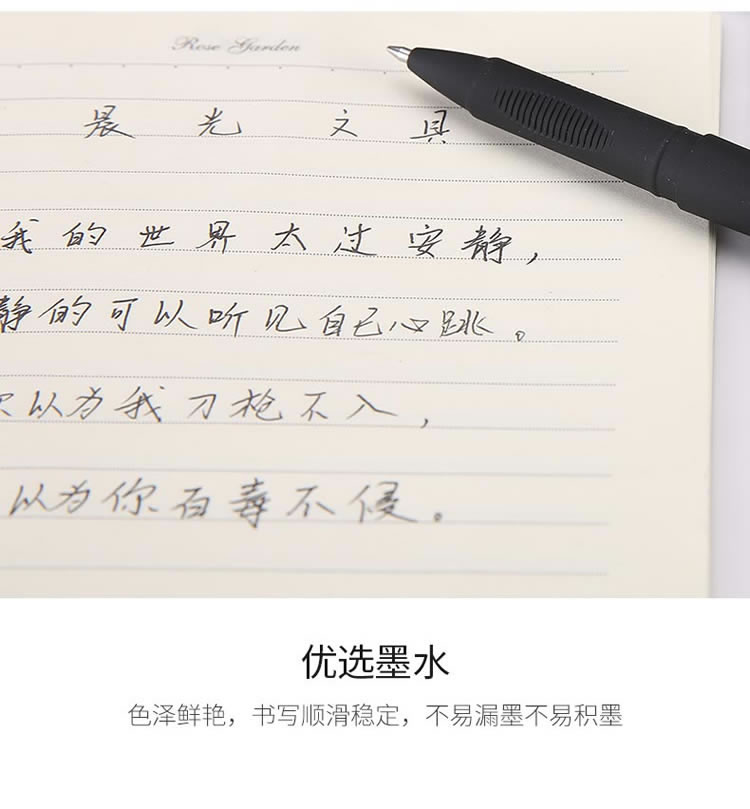 Rose Garden
晨光文具
我的世界太过安静，
静的可以听见自己心跳。
以为我刀枪不入，
以为你百毒不侵。
优选墨水
色泽鲜艳，书写顺滑稳定，不易漏墨不易积墨